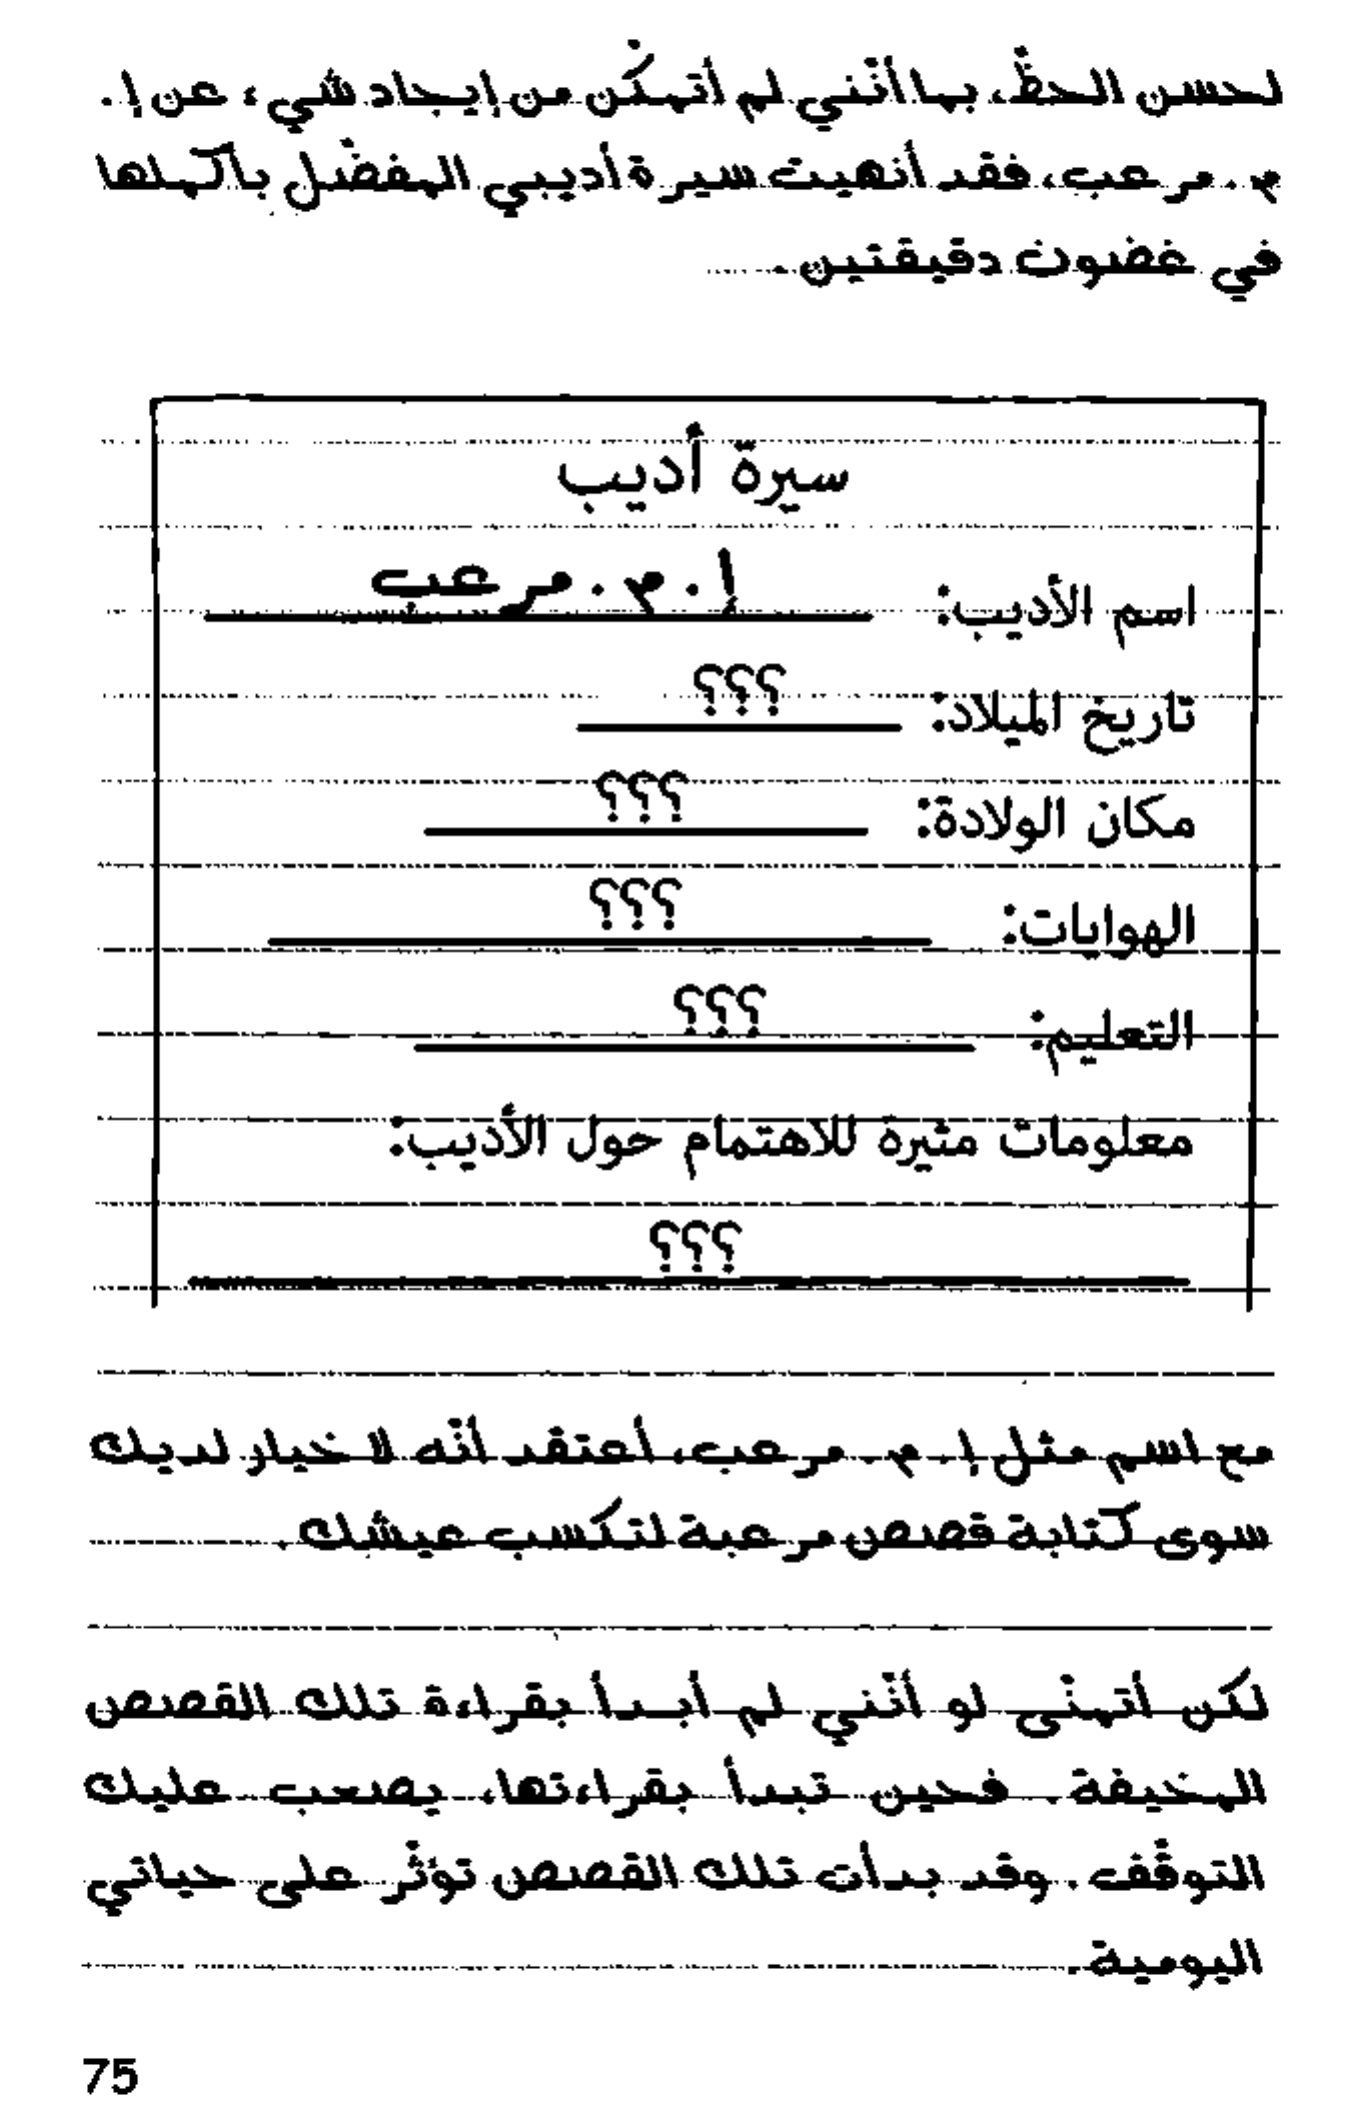 لحسن الحظّ، بما أنّني لم أتمكّن من إيجاد شيء عن إ.
م. مرعب، فقد أنهيت سيرة أديبي المفضّل بأكملها
في غضون دقيقتين.
سيرة أديب
اسم الأديب: إ. م. مرعب
تاريخ الميلاد: ؟؟؟
مكان الولادة: ؟؟؟
الهوايات: ؟؟؟
التعليم: ؟؟؟
معلومات مثيرة للاهتمام حول الأديب:
؟؟؟
مع اسم مثل إ. م. مرعب، أعتقد أنّه لا خيار لديك
سوى كتابة قصص مرعبة لتكسب عيشك.
لكن أتمنّى لو أنّني لم أبدأ بقراءة تلك القصص
المخيفة. فحين تبدأ بقراءتها، يصعب عليك
التوقّف. وقد بدأت تلك القصص تؤثّر على حياتي
اليومية.
75